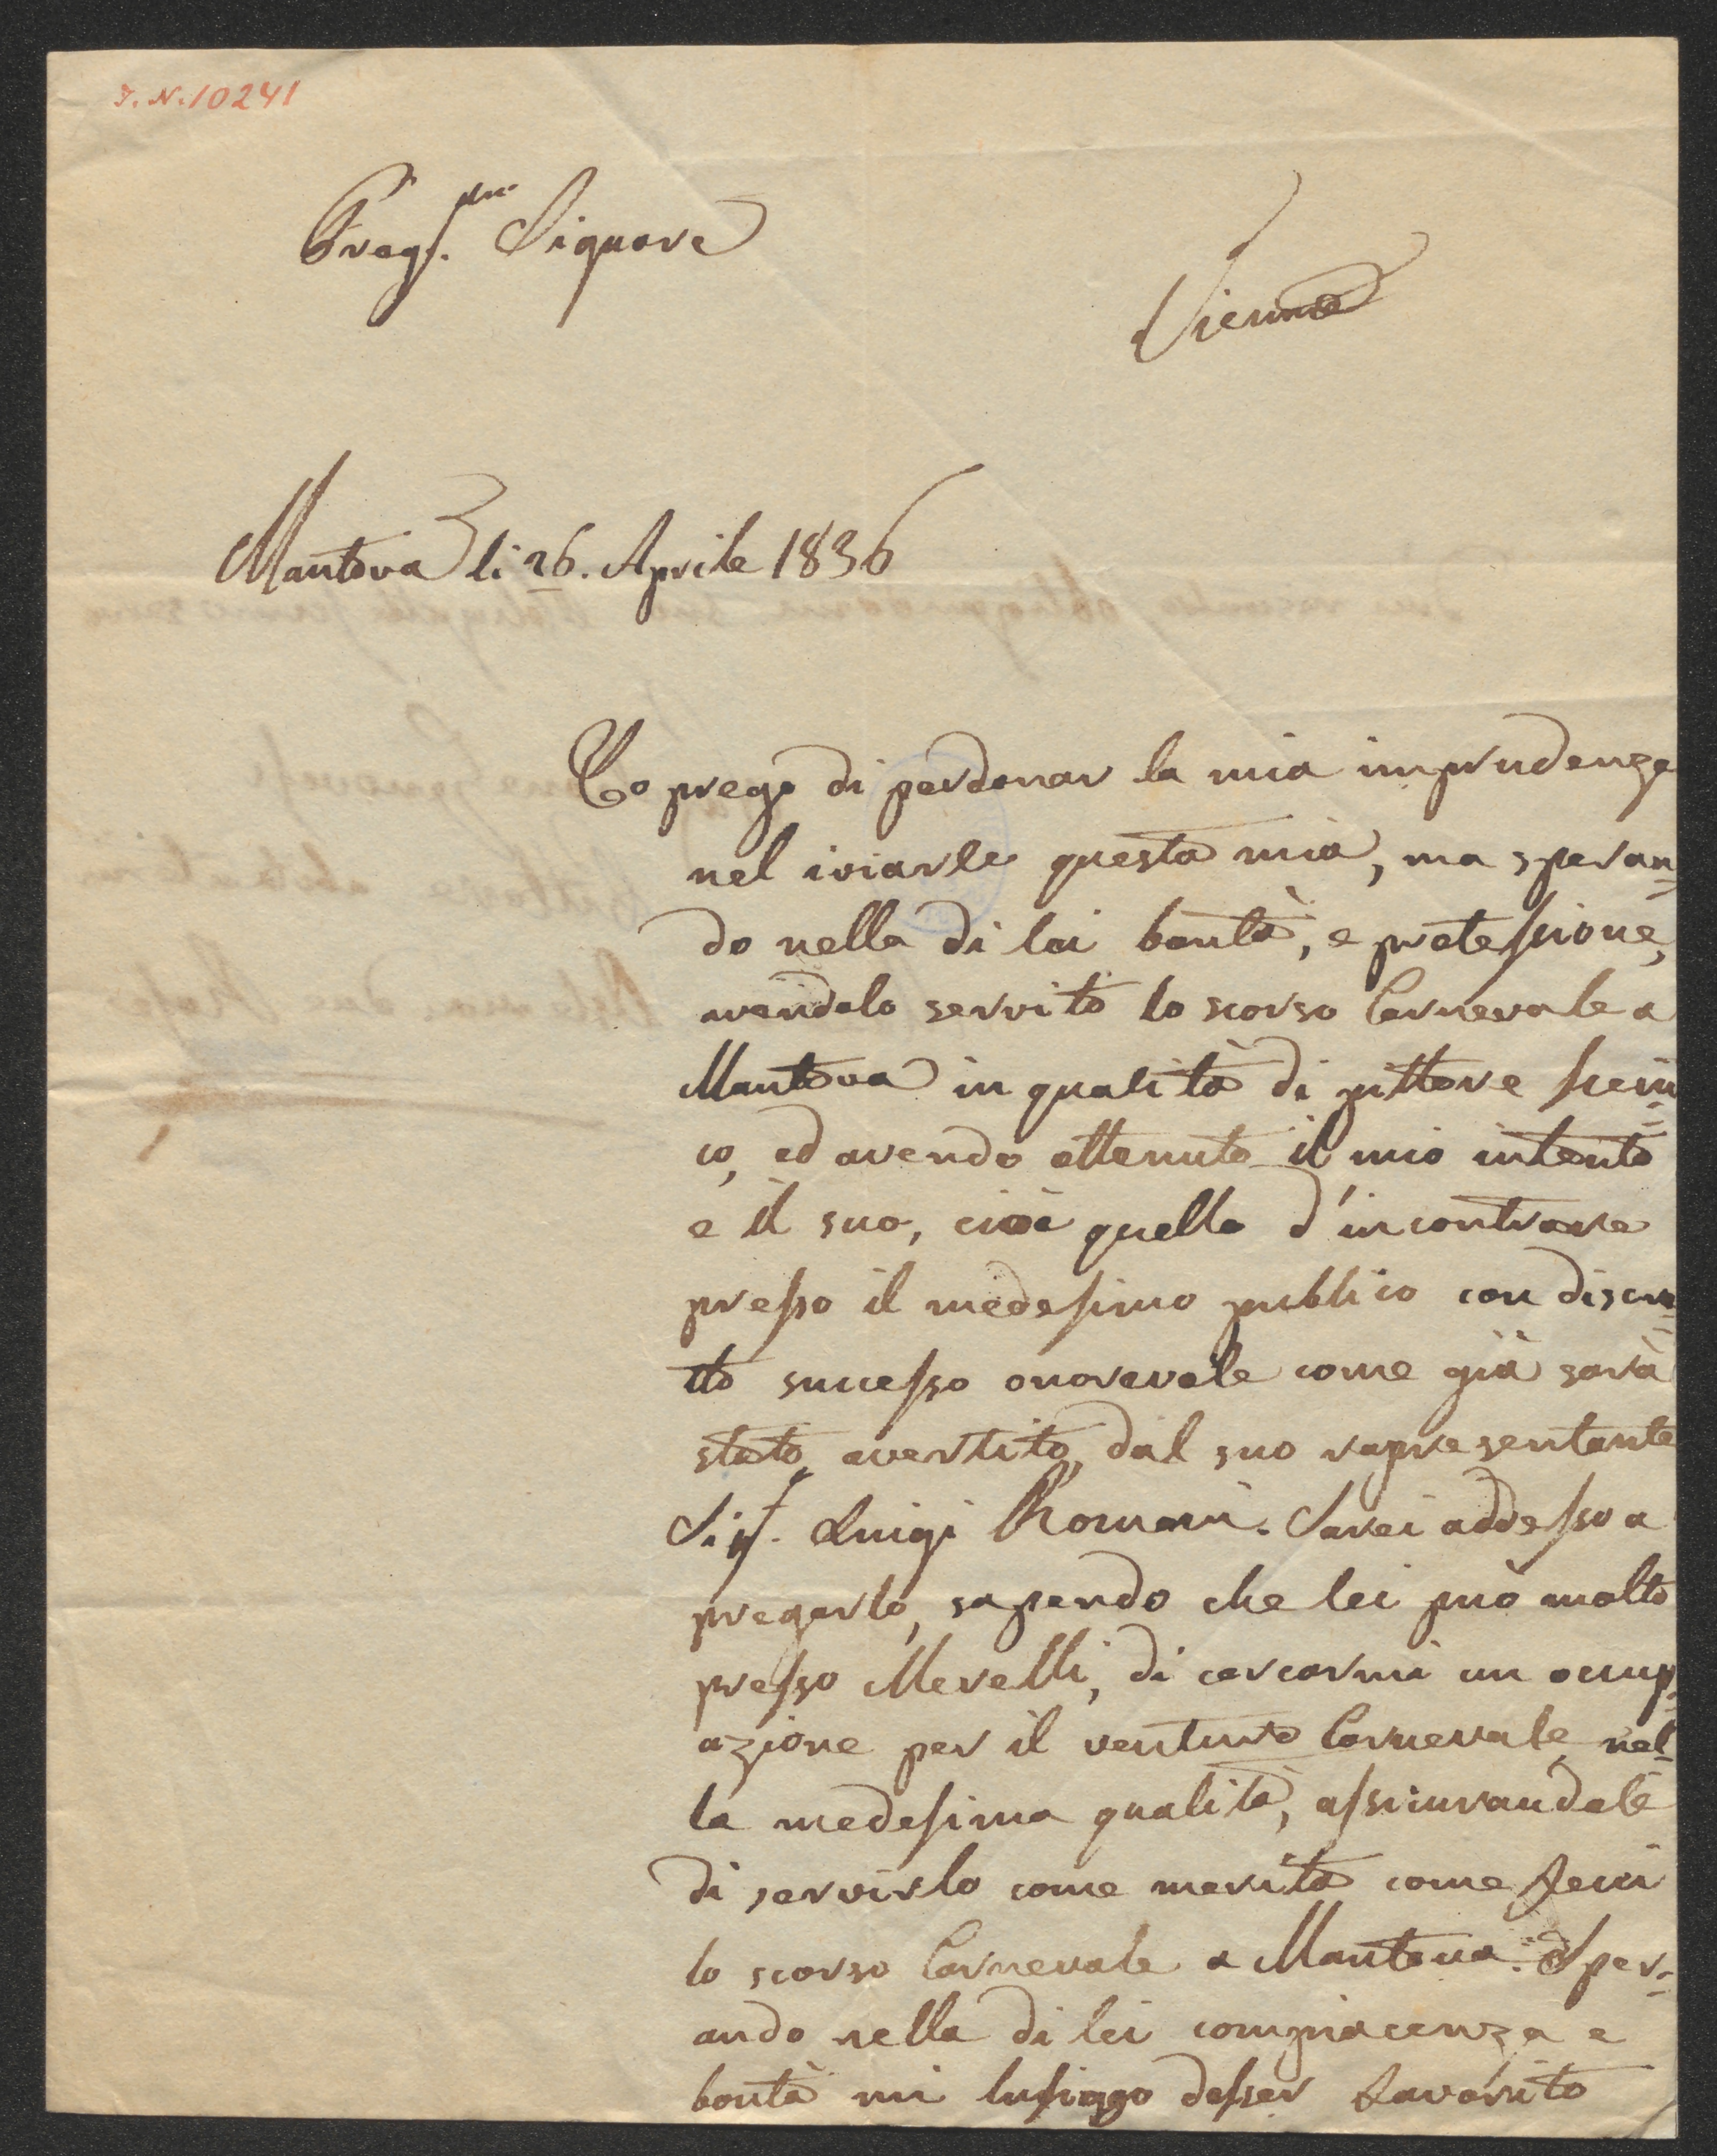 I. N. 10241
Pregs.mo Signore
Vienna
Mantova li 26. Aprile 1836
Lo prego di perdonar la mia imprudenza
nel iviarle questa mia, ma speran=
do nella di lei bontà, e protessione,
avendolo servito lo scorso Carnevale a
Mantova in qualità di pittore sceni=
co, ed avendo ottenuto il mio intento
e il suo, cioè quello d'incontrare
presso il medesimo publico con discre=
tto successo onorevole come già sarà
stato avertito dal suo rapresentante
Sig.r Luigi Romani. Sarei addesso a
pregarlo, sapendo che lei può molto
presso Merelli, di cercarmi un occup=
azione per il venturo Carnevale nel=
la medesima qualità, assicurandolo
di servirlo come merita come feci
lo scorso Carnevale a Mantova. Sper=
ando nella di lei compiacenza e
bontà mi lusingo desser favorito